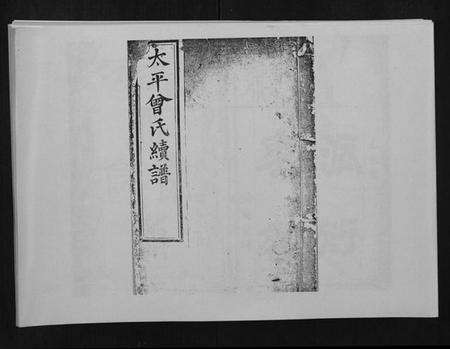 太平曾氏續譜